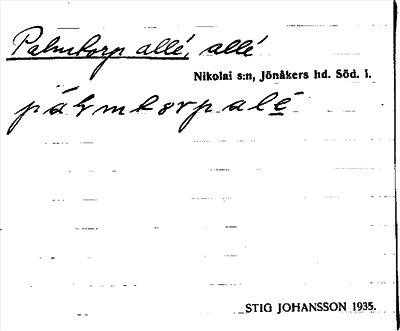 Palmtorp allé, allé
Nikolai s:n, Jönåkers hd. Söd. l.
pálmtorpalé
STIG JOHANSSON 1935.